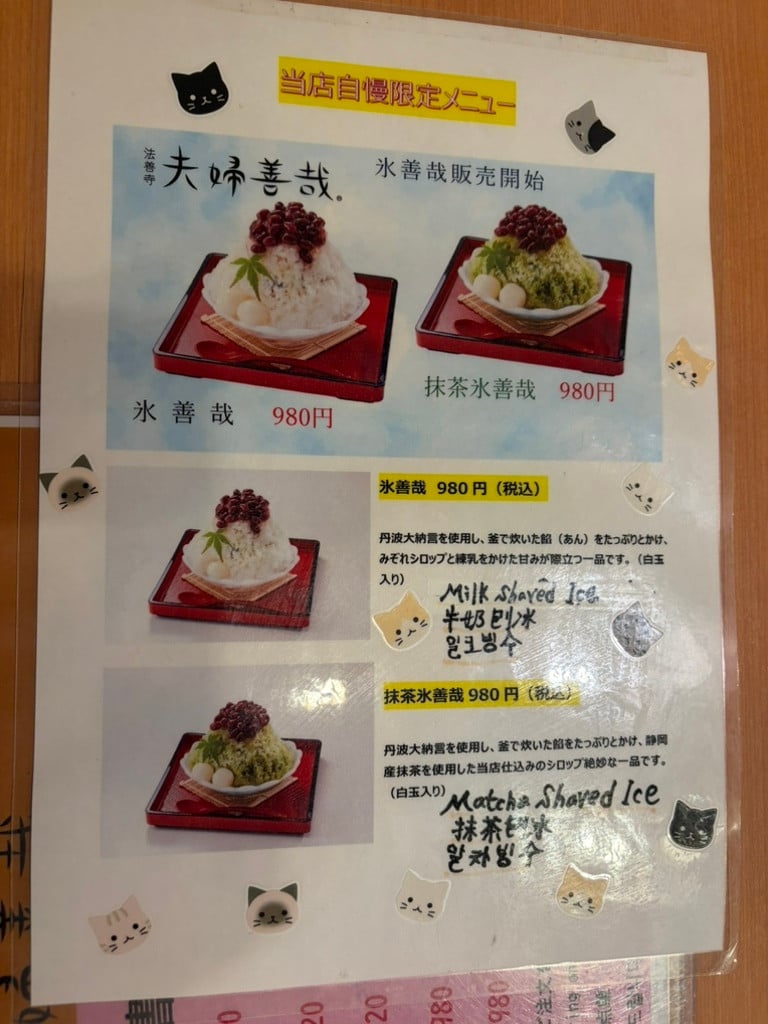 当店自慢限定メニュー
法善寺
夫婦善哉。
氷善哉販売開始
氷善哉 980円
抹茶氷善哉 980円
氷善哉 980円（税込）
丹波大納言を使用し、釜で炊いた餡（あん）をたっぷりとかけ、
みぞれシロップと練乳をかけた甘みが際立つ一品です。（白玉
入り）
Milk Shaved Ice
牛奶刨冰
밀크빙수
抹茶氷善哉 980円（税込）
丹波大納言を使用し、釜で炊いた餡をたっぷりとかけ、静岡
産抹茶を使用した当店仕込みのシロップ絶妙な一品です。
（白玉入り）
Matcha Shaved Ice
抹茶刨冰
말차빙수